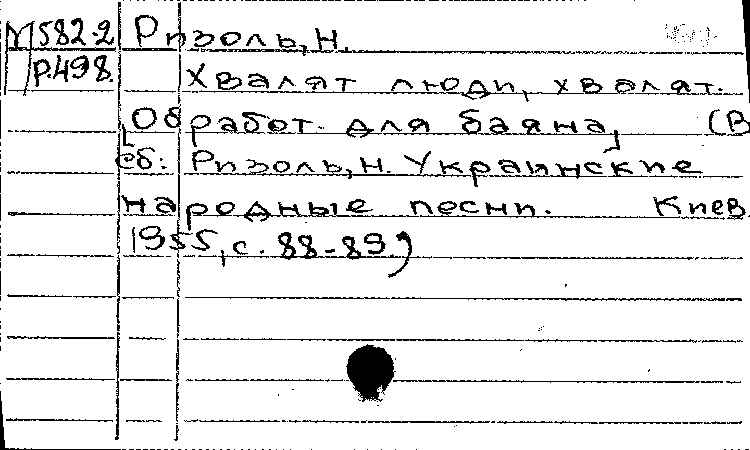 М582-2 Ризоль, Н.
Р.498. Хвалят люди, хвалят.
[Обработ. для баяна] (В
сб: Ризоль, Н. Украинские
народные песни. Киев
1955, с. 88-89)